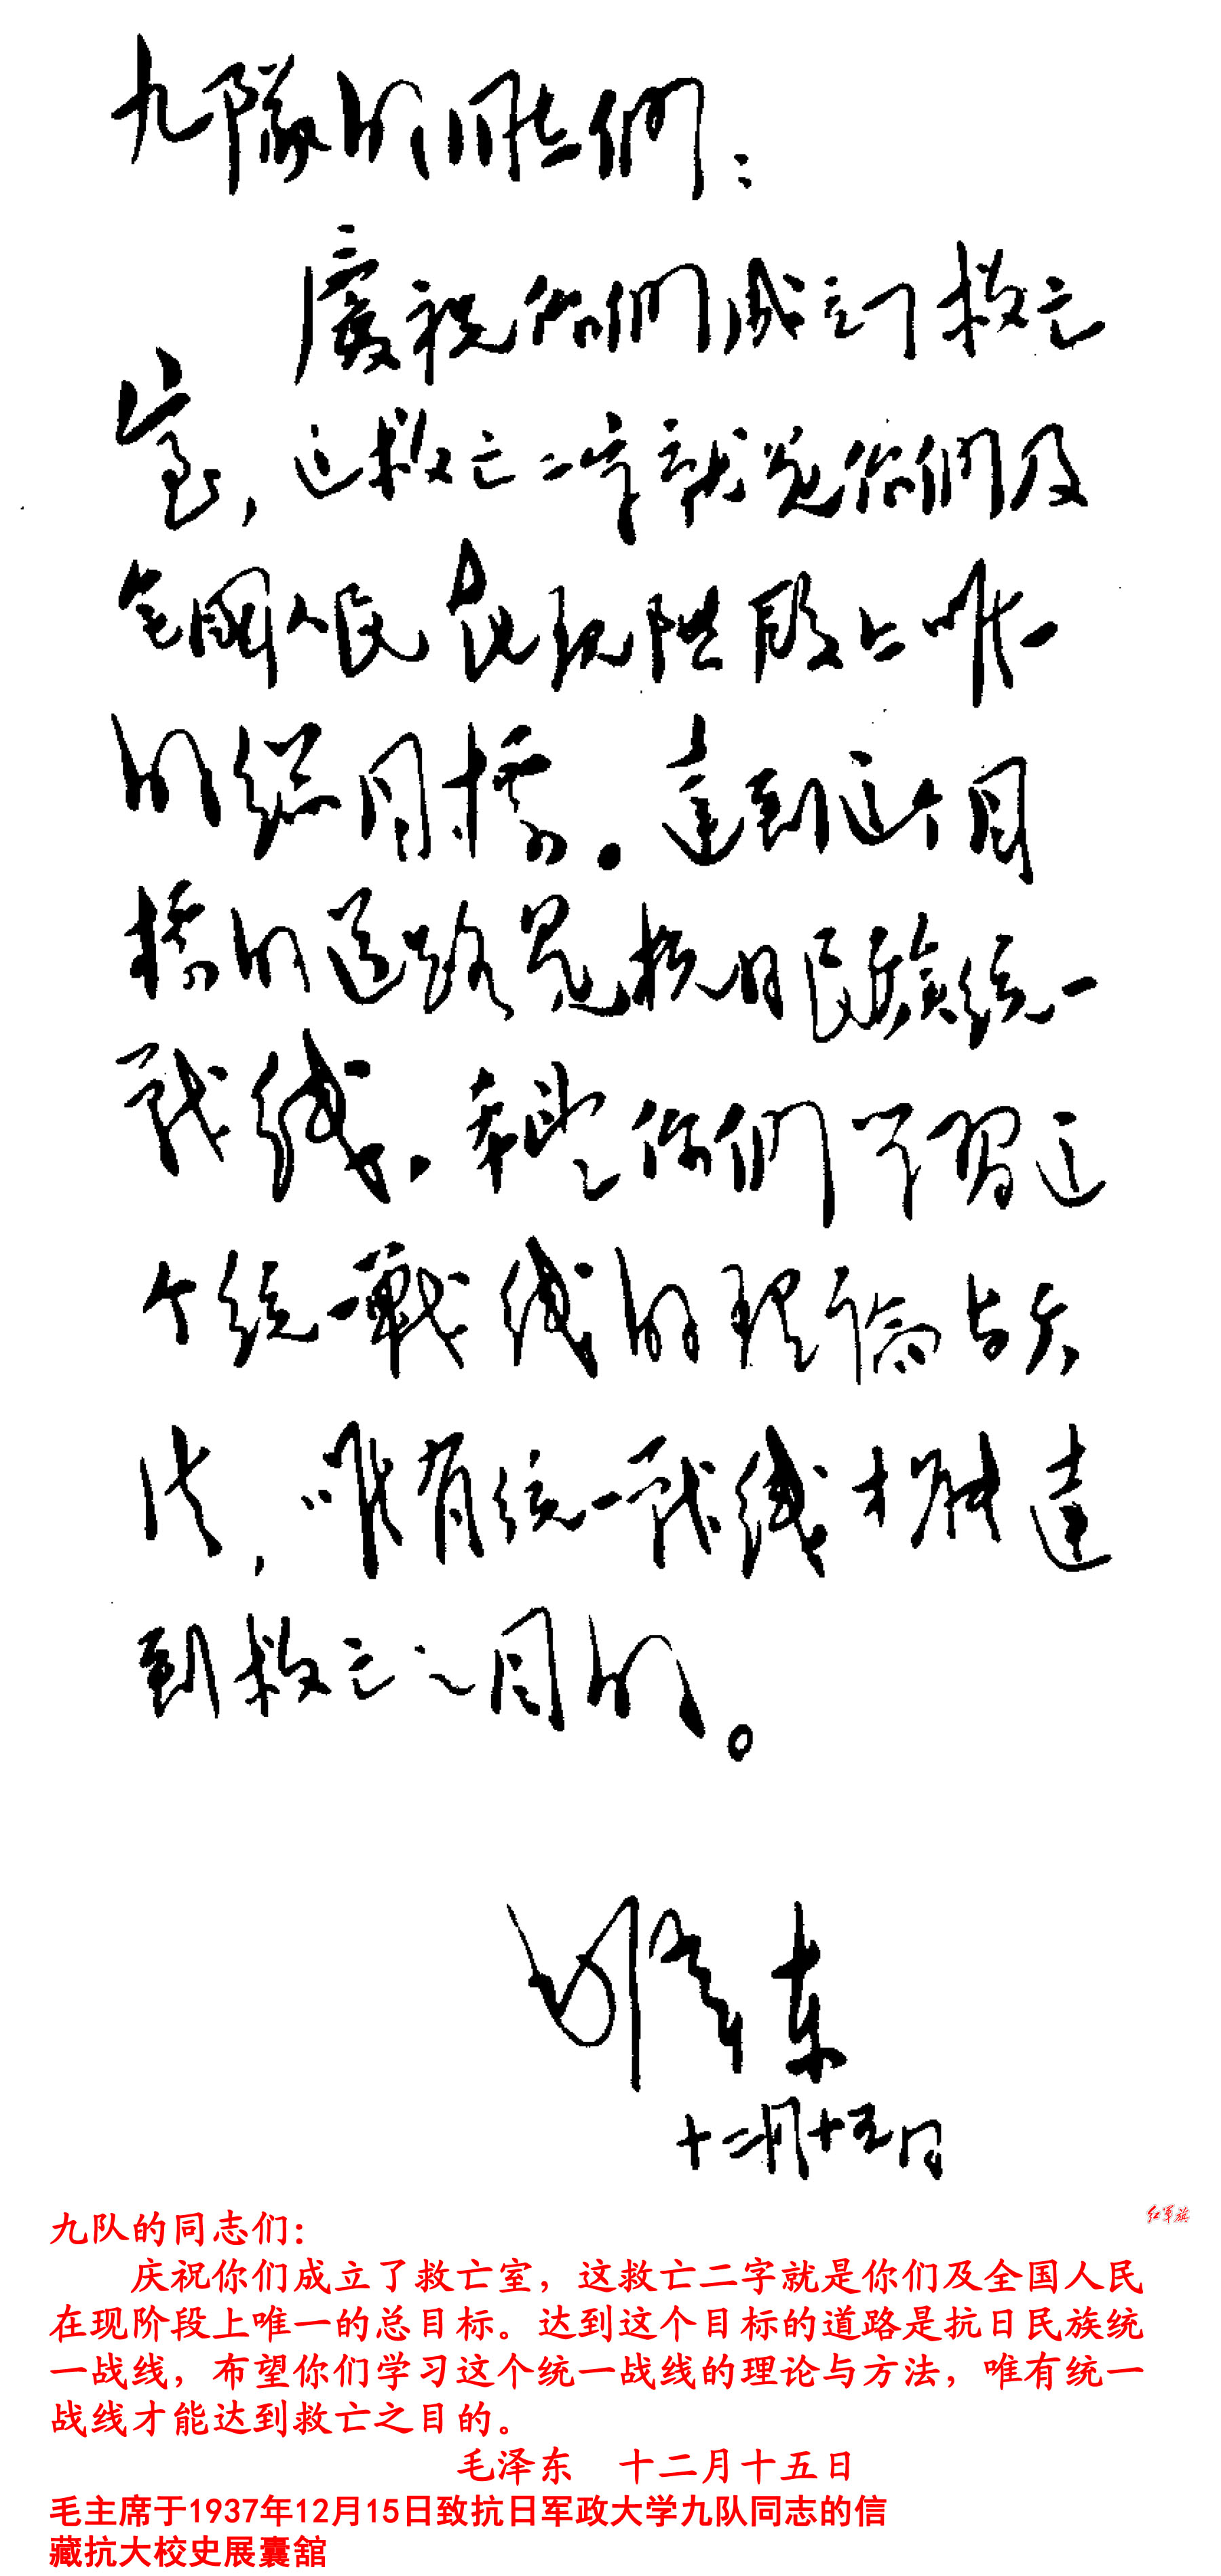 九隊的同志們：
慶祝你們成立了救亡
室，这救亡二字就是你們及
全國人民在现阶段上唯一
的總目標。達到这个目
標的道路是抗日民族統一
戰线，布望你們学習这
个統一戰线的理論与方
法，唯有統一戰线才能達
到救亡之目的。
毛泽东
十二月十五日
红军旗
九队的同志们：
庆祝你们成立了救亡室，这救亡二字就是你们及全国人民
在现阶段上唯一的总目标。达到这个目标的道路是抗日民族统
一战线，布望你们学习这个统一战线的理论与方法，唯有统一
战线才能达到救亡之目的。
毛泽东 十二月十五日
毛主席于1937年12月15日致抗日军政大学九队同志的信
藏抗大校史展囊舘